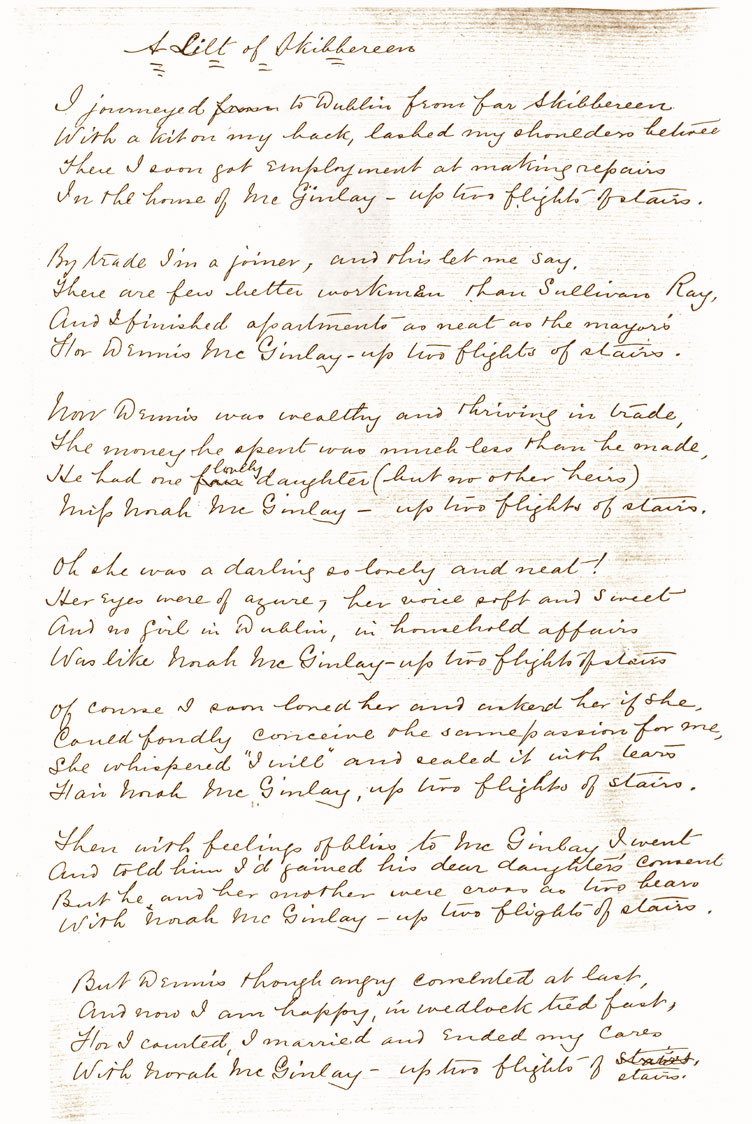 A Lilt of Skibbereen
I journeyed from to Dublin from far Skibbereen
With a kit on my back, lashed my shoulders between
There I soon got employment at making repairs
In the house of Mc Ginlay – up two flights of stairs.
By trade I'm a joiner, and this let me say,
There are few better workmen than Sullivan Ray,
And I finished apartments as neat as the mayor's
For Dennis Mc Ginlay – up two flights of stairs.
Now Dennis was wealthy and thriving in trade,
The money he spent was much less than he made,
lovely
He had one fair daughter (but no other heirs)
Miss Norah Mc Ginlay – up two flights of stairs.
Oh she was a darling so lovely and neat!
Her eyes were of azure, her voice soft and sweet
And no girl in Dublin, in household affairs
Was like Norah Mc Ginlay – up two flights of stairs
Of course I soon loved her and asked her if she,
Could fondly conceive the same passion for me,
She whispered "I will" and sealed it with tears
Fair Norah Mc Ginlay, up two flights of stairs.
Then with feelings of bliss to Mc Ginlay I went
And told him I'd gained his dear daughter's consent
But he, and her mother were cross as two bears
With Norah Mc Ginlay – up two flights of stairs.
But Dennis though angry consented at last,
And now I am happy, in wedlock tied fast,
For I courted, I married and ended my cares
With Norah Mc Ginlay – up two flights of stairs,
stairs.